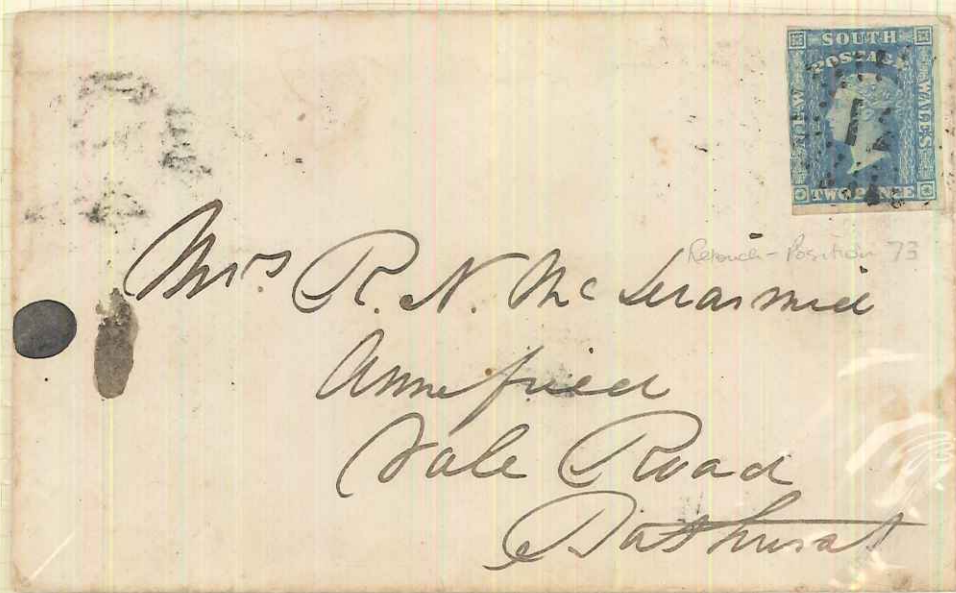 SOUTH
POSTAGE
NEW
WALES
TWO PENCE
Retouch - Position 73
Mrs R. N. Mc
Annefield
Vale Road
Bathurst